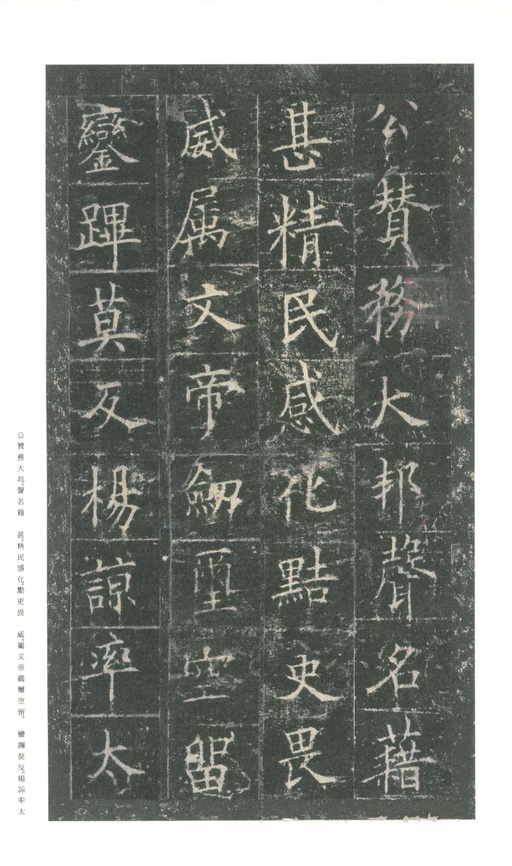 公賛務大邦聲名藉
甚精民感化黠吏畏
威属文帝劒壐空留
鑾蹕莫反楊諒率太
公贊務大邦。聲名籍 甚。精民感化。黠吏畏 威。屬文帝劒璽空留。 鑾蹕莫反。楊諒率太